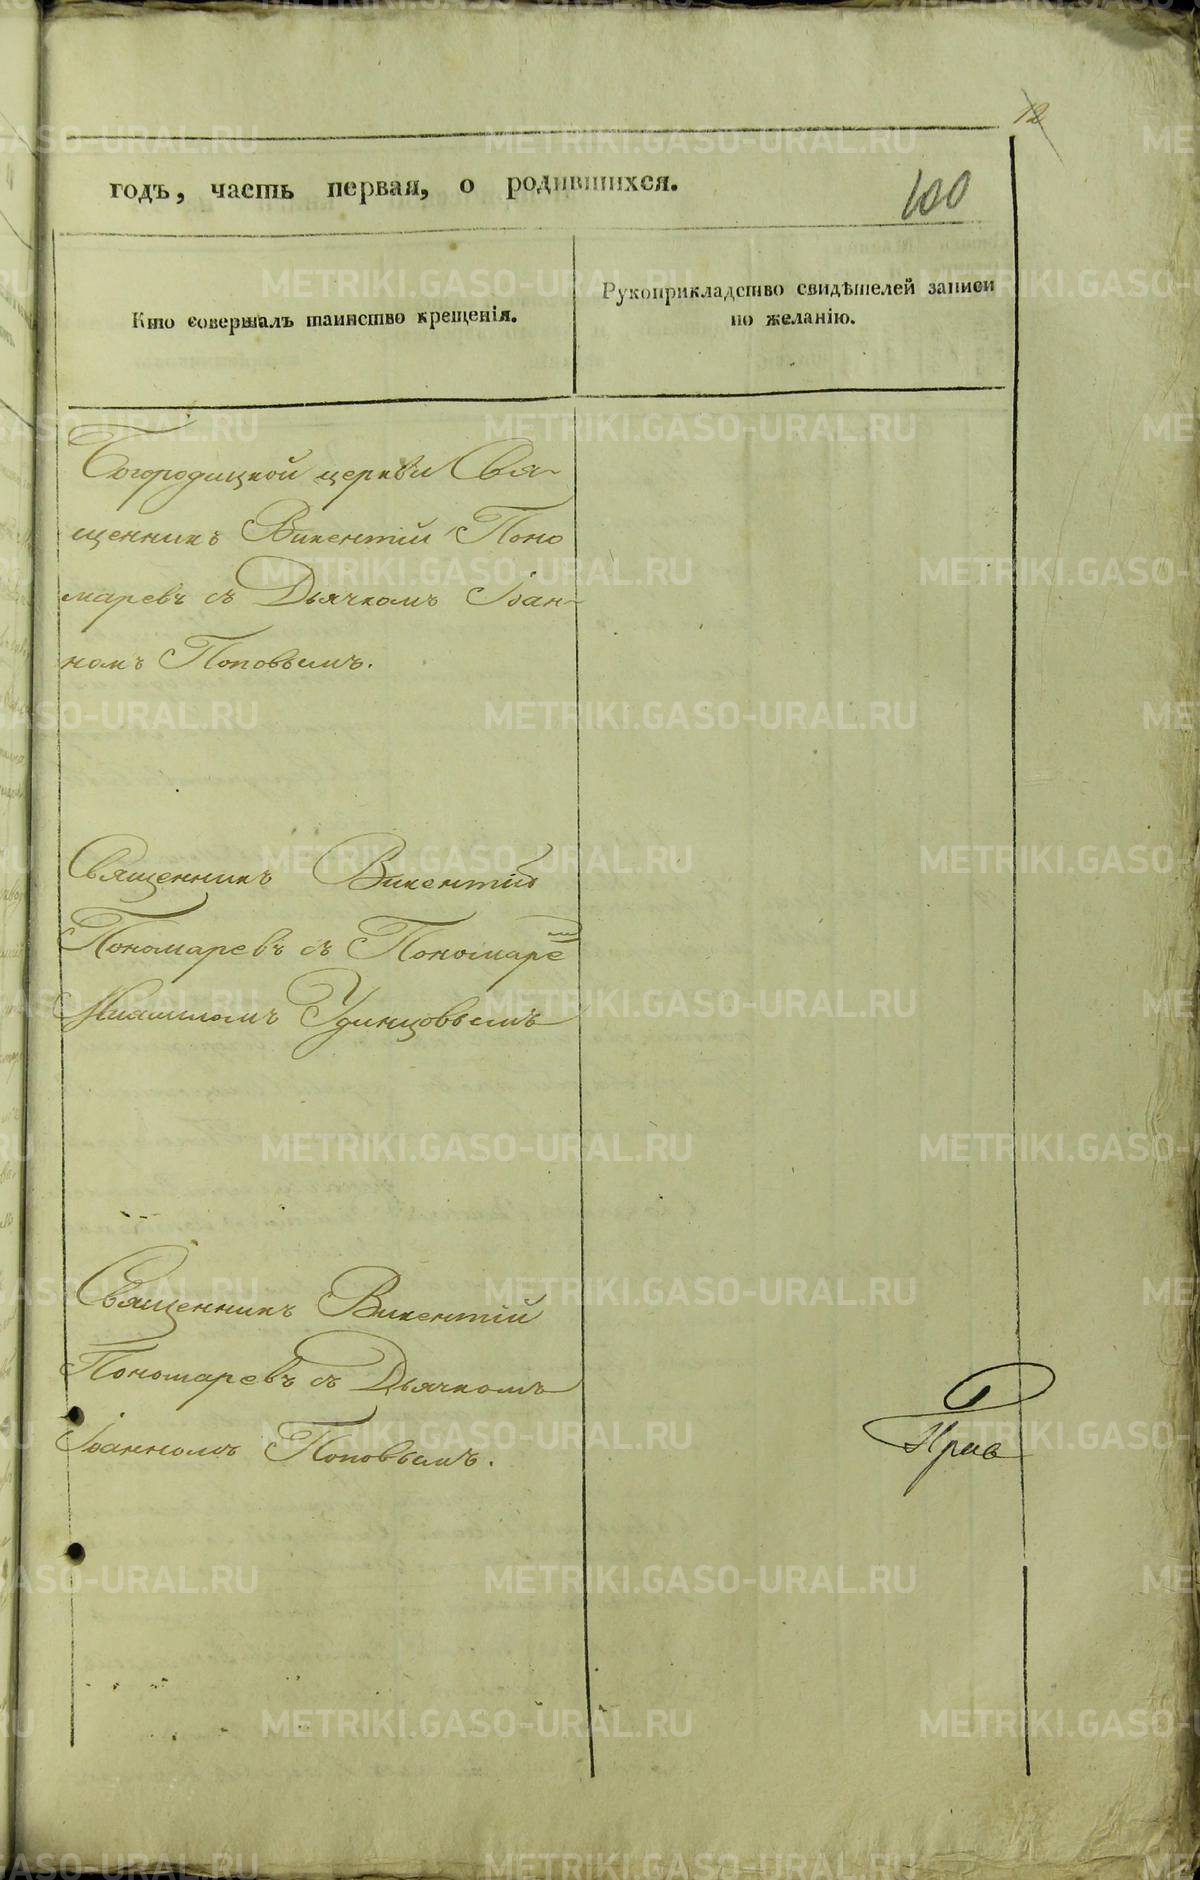 12
годъ, часть первая, о родившихся.
100
Кто совершалъ таинство крещенія.
Рукоприкладство свидѣтелей записи
по желанію.
Богородицкой церкви Свя-
щенникъ Викентій Поно
маревъ съ Дьячкомъ Іоан-
номъ Поповымъ.
Священникъ Викентій
Пономаревъ съ Пономаре
Удинцовымъ
Священникъ Викентій
Пономаревъ съ Дьячкомъ
Іоанномъ Поповымъ.
METRIKI.GASO-URAL.RU